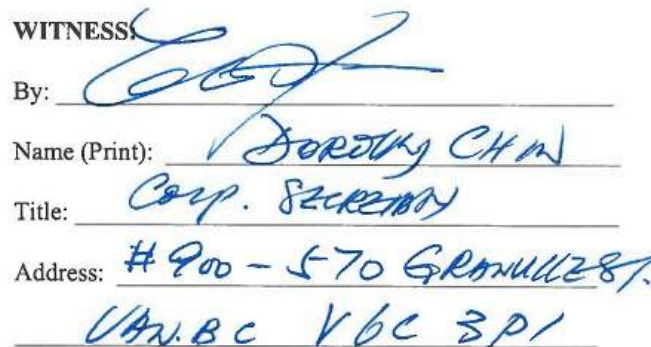 WITNESS:
By:
Name (Print): DOROTHY CHIN
Title: Corp. SECRETARY
Address: #900-570 GRANVILLE ST.
VAN. BC V6C 3P1